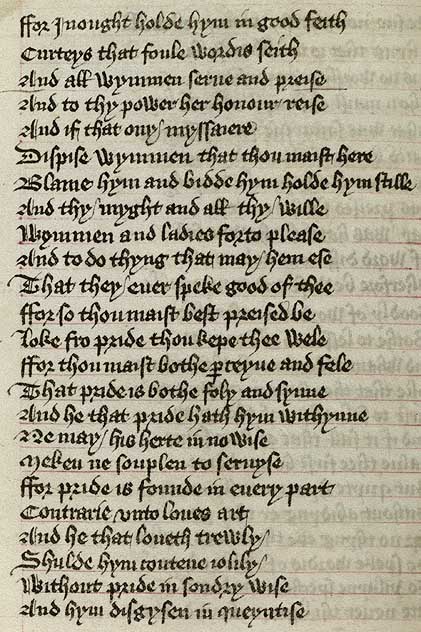 ffor I nought holde hym in good feith
Curteys that foule wordis seith
And all wymmen serue and preise
And to thy power her honour reise
And if that ony myssaiere
Dispise wymmen that thou maist here
Blame hym and bidde hym holde hym stille
And thy myght and all thy wille
Wymmen and ladies forto please
And to do thyng that may hem ese
That they euer speke good of thee
ffor so thou maist best preised be
Loke fro pride thou kepe thee wele
ffor thou maist bothe perceyue and fele
That pride is bothe foly and synne
And he that pride hath hym withynne
Ne may his herte in no wise
Meken ne souplen to seruyse
ffor pride is founde in euery part
Contrarie vnto loves art
And he that loveth trewly
Shulde hym contene iolily
Without pride in sondry wise
And hym disgysen in queyntise